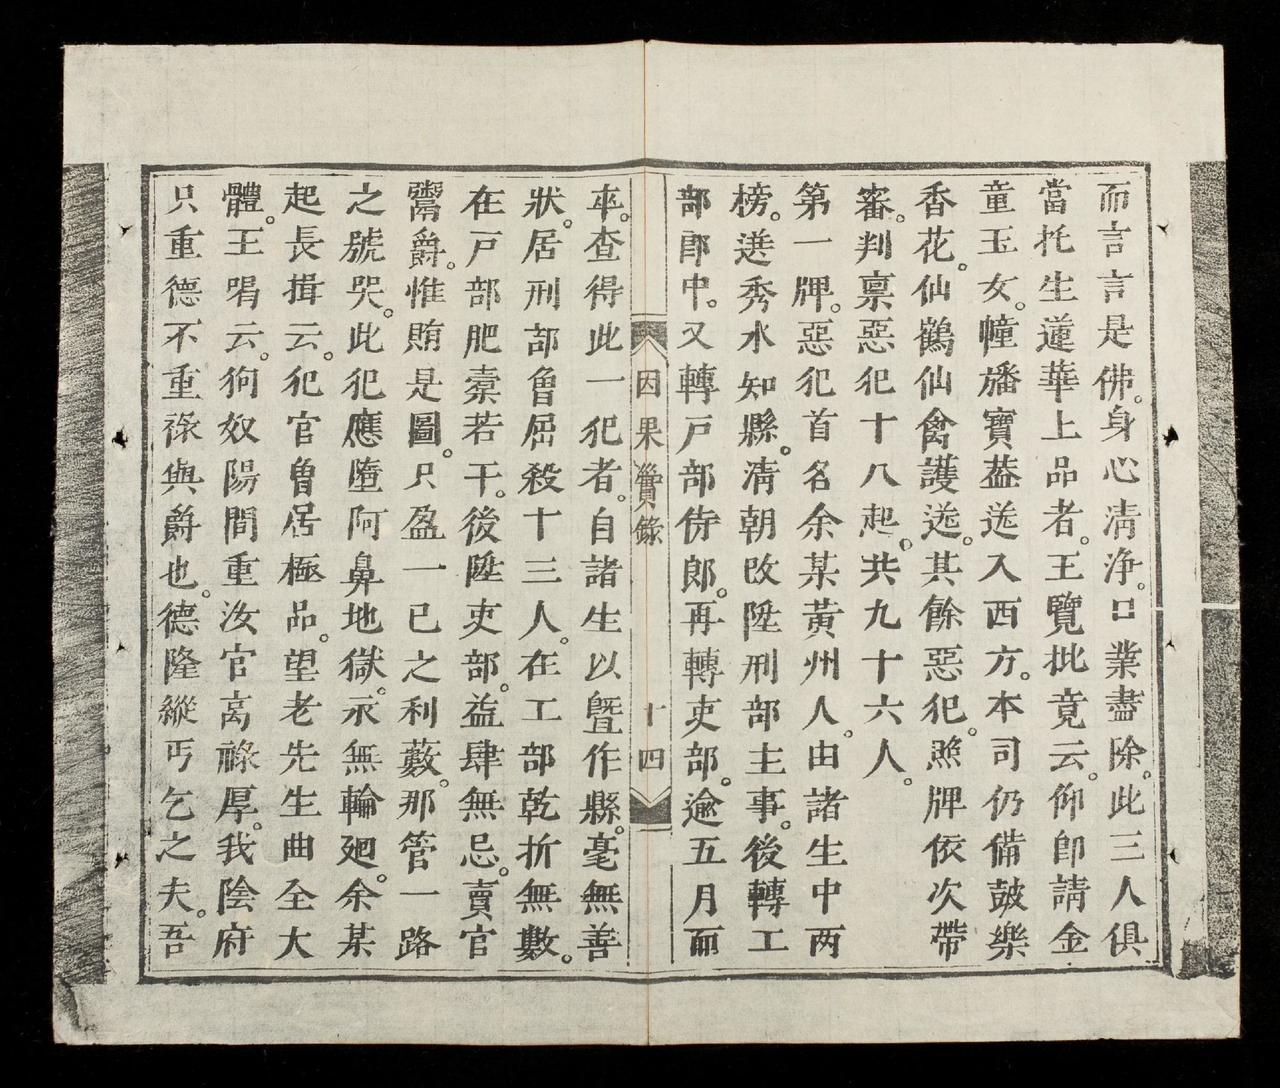 而言言是佛。身心清淨。口業盡除。此三人俱
當托生蓮華上品者。王覽批竟云。仰即請金
童玉女。幢旛寶葢送入西方。本司仍備鼓樂
香花。仙鶴仙禽護送。其餘惡犯。照牌依次帶
審。判稟惡犯十八起。共九十六人。
第一牌。惡犯首名余某黃州人。由諸生中两
榜。選秀水知縣。清朝改陞刑部主事。後轉工
部郎中。又轉户部侍郎。再轉吏部。逾五月而
因果實錄
十四
卒。查得此一犯者。自諸生以曁作縣。毫無善
狀。居刑部魯屈殺十三人。在工部乾折無數。
在户部肥橐若干。後陞吏部。益肆無忌。賣官
鬻爵。惟賄是圖。只盈一已之利藪。那管一路
之號哭。此犯應墮阿鼻地獄。永無輪廻。余某
起長揖云。犯官曾居極品。望老先生曲全大
體。王喝云。狗奴陽間重汝官高祿厚。我陰府
只重德不重祿與爵也。德隆縱丐乞之夫。吾